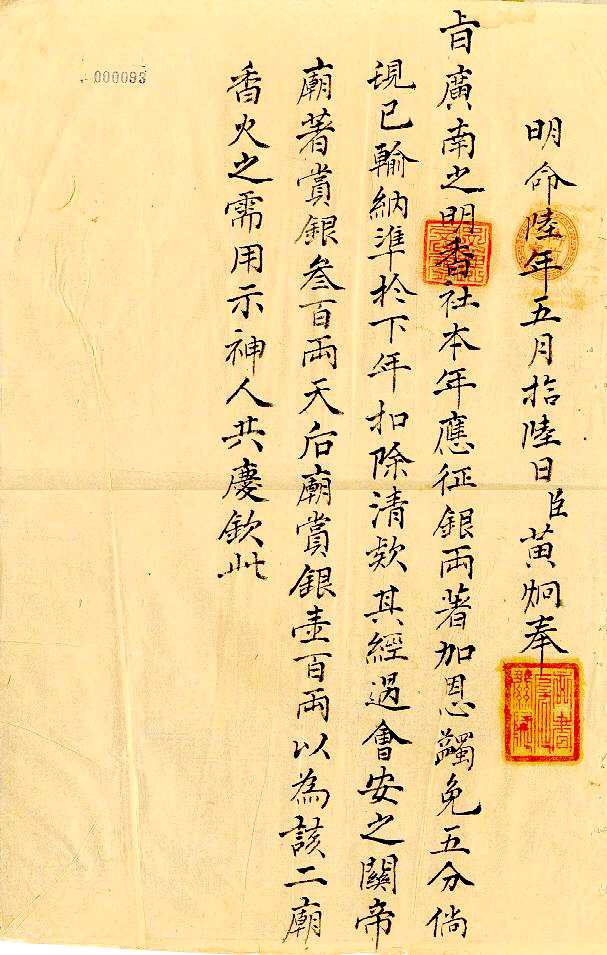 明命陸年五月拾陸日臣黃炯奉
旨廣南之明香社本年應征銀兩著加恩蠲免五分倘
現已輸納準於下年扣除清欵其經過會安之關帝
廟著賞銀叁百兩天后廟賞銀壹百兩以為該二廟
香火之需用示神人共慶欽此
000093